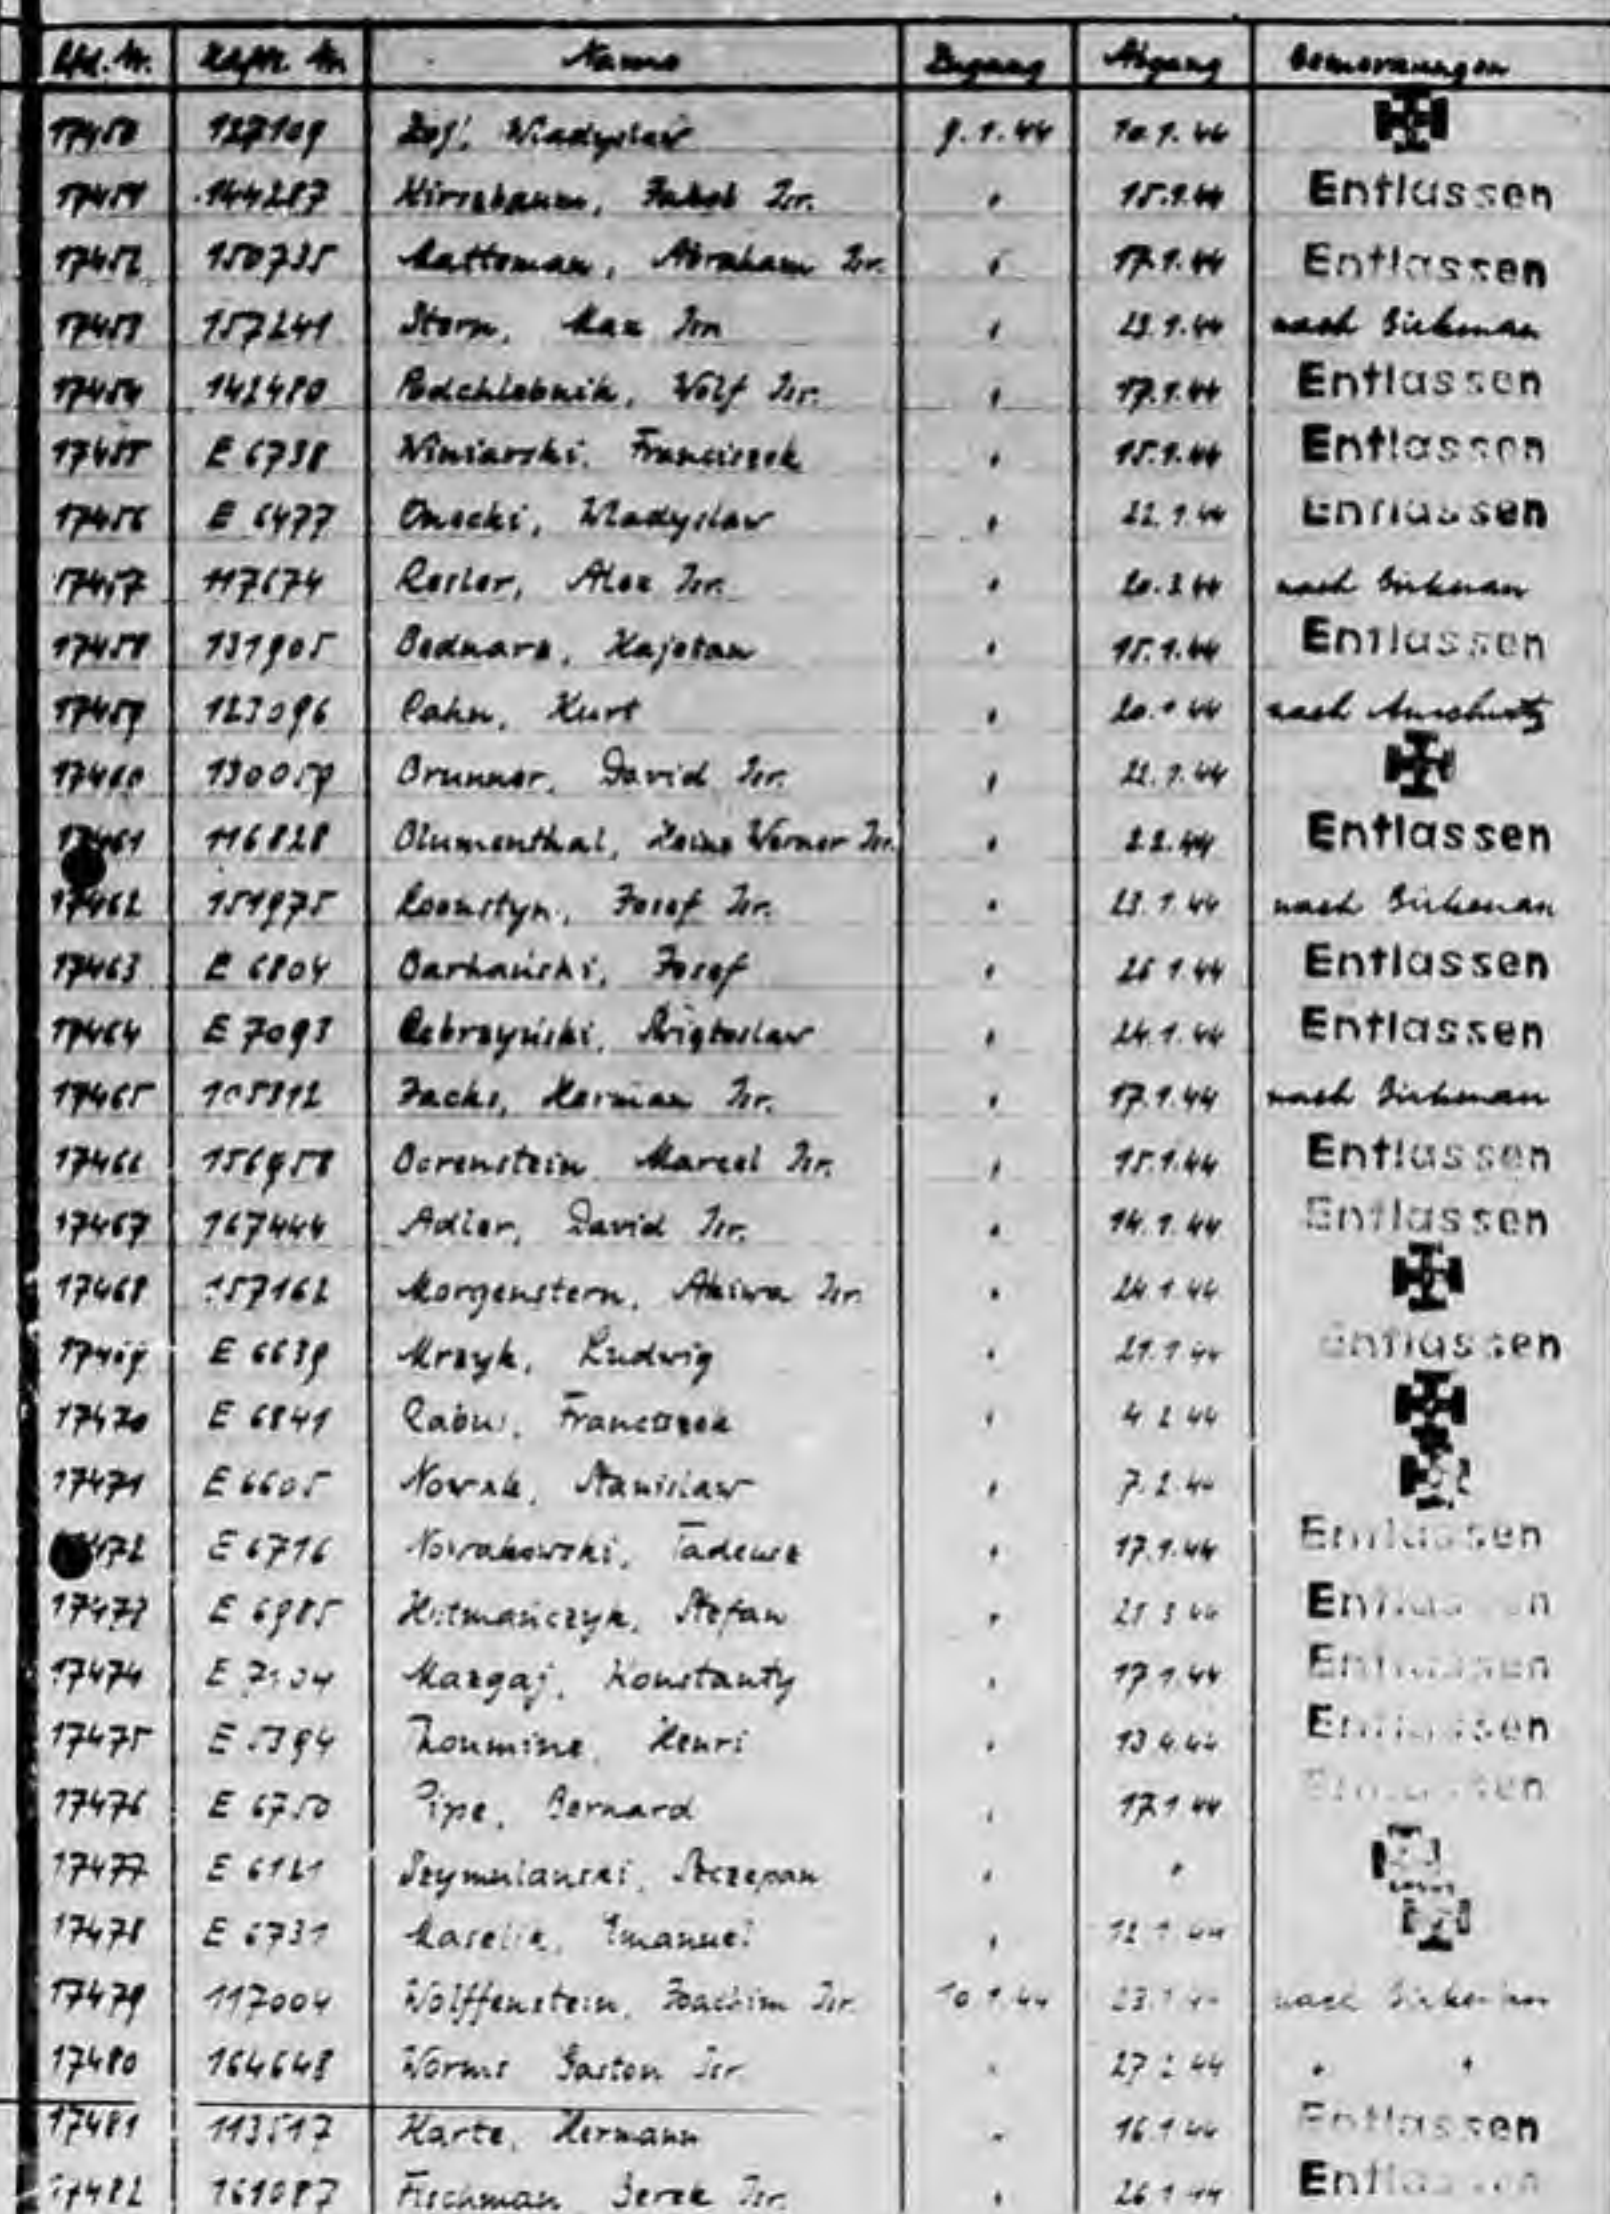 Lfd. Nr. Häftl. Nr. Name Zugang Abgang Bemerkungen
17450 127109 Wladyslaw 9.1.44 10.1.44
17451 144287 Hirszbaum, Jakob Isr. " 15.1.44 Entlassen
17452 150735 Abraham Isr. " 17.1.44 Entlassen
17453 157241 Stern, Max Isr. " 23.1.44 nach Birkenau
17454 142480 Podchlebnik, Wolf Isr. " 17.1.44 Entlassen
17455 E 6738 Winiarski, Franciszek " 15.1.44 Entlassen
17456 E 6477 Wladyslaw " 22.1.44 Entlassen
17457 117674 Resler, Alex Isr. " nach Birkenau
17458 131905 Bednarz, Kajetan " 15.1.44 Entlassen
17459 123096 Cahn, Kurt " 20.1.44 nach Auschwitz
17460 130059 Brunner, David Isr. " 22.1.44
17461 116828 Blumenthal, Heinz Werner Isr. " 2.2.44 Entlassen
17462 151975 Josef Isr. " 23.1.44 nach Birkenau
17463 E 6804 Barhański, Josef " 26.1.44 Entlassen
17464 E 7093 " 24.1.44 Entlassen
17465 105312 Herman Isr. " 17.1.44 nach Birkenau
17466 156958 Borenstein, Marcel Isr. " 15.1.44 Entlassen
17467 167444 Adler, David Isr. " 14.1.44 Entlassen
17468 157162 Morgenstern, Akiwa Isr. " 24.1.44
17469 E 6639 Mrzyk, Ludwig " 21.1.44 Entlassen
17470 E 6841 Franciszek " 4.2.44
17471 E 6605 Nowak, Stanislaw " 7.2.44
E 6716 Nowakowski, Tadeusz " 17.1.44 Entlassen
17473 E 6985 Stefan " Entlassen
17474 Mazgaj, Konstanty " 17.1.44 Entlassen
17475 Henri " 13.4.44 Entlassen
17476 E 6750 Pipe, Bernard " 17.1.44 Entlassen
17477 E 6121 Szczepan " "
17478 E 6731 Emanuel " 12.1.44
17479 117004 Wolffenstein, Joachim Isr. 10.1.44 23.1.44 nach Birkenau
17480 164648 Worms Gaston Isr. " 27.2.44 " "
17481 113517 Harte, Hermann " 16.1.44 Entlassen
17482 161087 Fischman Berek Isr. " 26.1.44 Entlassen